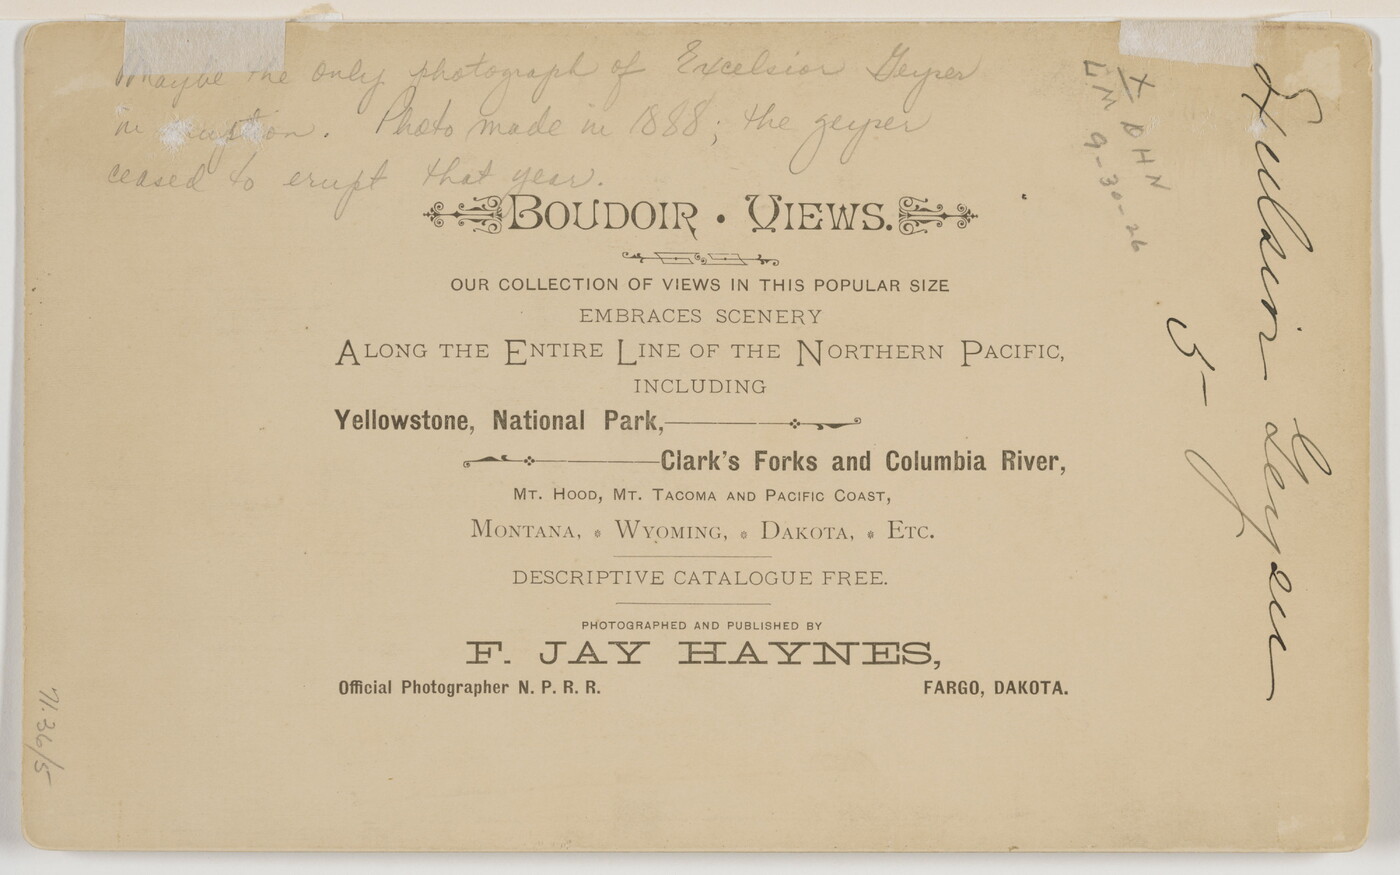 Maybe the only photograph of Excelsior Geyser
in eruption. Photo made in 1888; the geyser
ceased to erupt that year.
BOUDOIR · VIEWS.
OUR COLLECTION OF VIEWS IN THIS POPULAR SIZE
EMBRACES SCENERY
ALONG THE ENTIRE LINE OF THE NORTHERN PACIFIC,
INCLUDING
Yellowstone, National Park,
Clark's Forks and Columbia River,
MT. HOOD, MT. TACOMA AND PACIFIC COAST,
MONTANA, * WYOMING, * DAKOTA, * ETC.
DESCRIPTIVE CATALOGUE FREE.
PHOTOGRAPHED AND PUBLISHED BY
F. JAY HAYNES,
Official Photographer N. P. R. R. FARGO, DAKOTA.
Excelsior Geyser
X DHN
LM 9-30-26
71.36/5